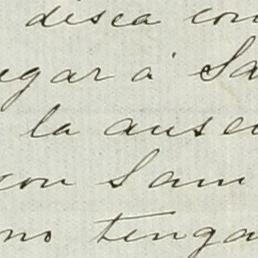 disea con
egar á Sa
la ausen
con Sam
no tenga